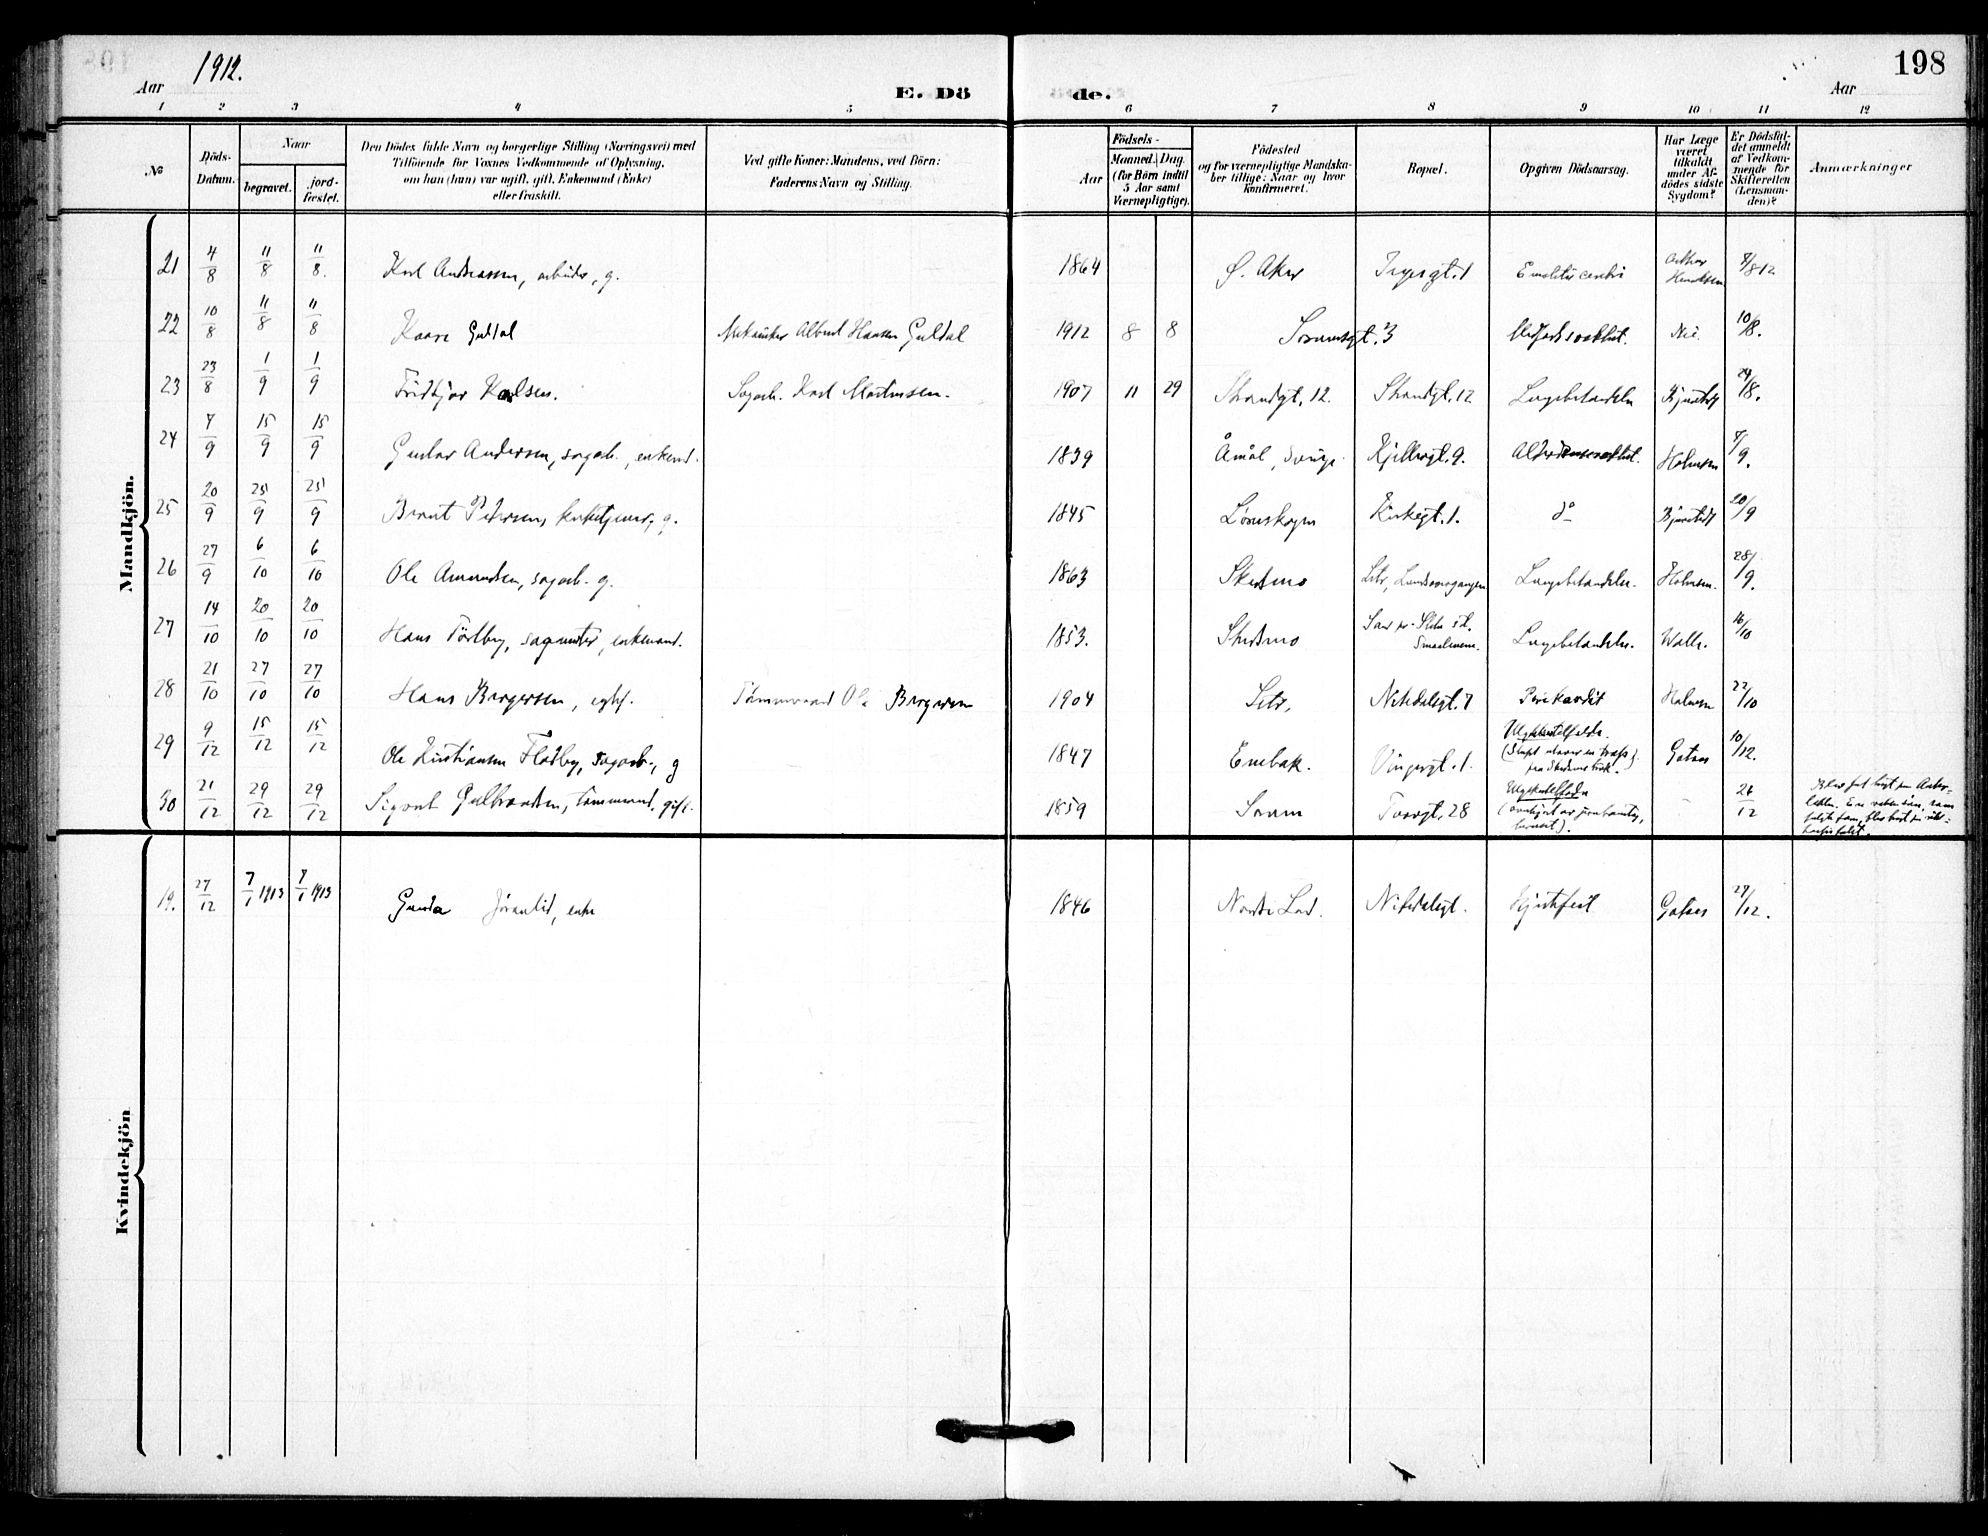 1912.
198
Aar
E. Dö
de.
Aar
1 2 3 4 5 6 7 8 9 10 11 12
№
Döds-
Datum.
Naar
begravet.
jord-
fæstet.
Den Dödes fulde Navn og borgerlige Stilling (Næringsvei) med
Tilföiende for Voxnes Vedkommende af Oplysning,
om han (hun) var ugift, gift, Enkemand (Enke)
eller fraskilt.
Ved gifte Koner: Mandens, ved Börn:
Faderens Navn og Stilling.
Födsels-
Aar
Maaned. Dag.
(for Börn indtil
5 Aar samt
Værnepligtige).
Födested
og for værnepligtige Mandska-
ber tillige: Naar og hvor
konfirmeret.
Bopæl.
Opgiven Dödsaarsag.
Har Læge
været
tilkaldt
under Af-
dödes sidste
Sygdom?
Er Dödsfal-
det anmeldt
af Vedkom-
mende for
Skifteretten
(Lensman-
den)?
Anmærkninger
Mandkjön.
21 4/8 11/8 11/8. Karl Andreassen, arbeider, g. 1864 Ø. Aker gt. 1 Arthur Henriksen 4/8 12
22 10/8 11/8 11/8 Kaare Guldal Mekaniker Albert Hansen Guldal 1912 8 8 gt. 3 Medfødt svakhet. Nei. 10/8.
23 23/8 1/9 1/9 Fridtjor Karlsen. Sagarb. Karl Martinsen. 1907 11 29 Strandgt. 12. Strandgt. 12 Lungebetændelse 24/8.
24 7/9 15/9 15/9 Gustav Andersen, sagarb., enkemd. 1839 Åmål, Sverige. gt. 9. Alderdomssvakhet. Holmsen 7/9.
25 20/9 25/9 25/9 Bernt Petersen, kirketjener, g. 1845 Lørenskogen Kirkegt. 1. do 20/9
26 27/9 6/10 6/10 Ole Amundsen, sagarb. g. 1863 Skedsmo Lstr, Lungebetændelse. Holmsen. 28/9.
27 14/10 20/10 20/10 Hans Törlby, sagmester, enkemand. 1853. Skedsmo Smaalenene. Lungebetændelse. Walle. 16/10
28 21/10 27/10 27/10 Hans Børgersen, Tømmermand Ole Børgersen 1904 Lstr, Nitedalsgt. 7 Perikardit Holmsen 22/10
29 9/12 15/12 15/12 Ole Kristiansen Flatby, sagarb., g 1847 Enebak. Vingersgt. 1. Ulykkestilfælde. Gotaas 10/12.
30 21/12 29/12 29/12 Sigvart Gulbrandsen, tømmermd., gift. 1859 Sørum Torvgt. 28 Ulykkestilfælde (overkjørt av - 26/12
Kvindekjön
19. 27/12 7/1 1913 7/1 1913 Gunda enke 1846 Nordre Land. Nitedalsgt. Hjertefeil Gotaas 27/12.